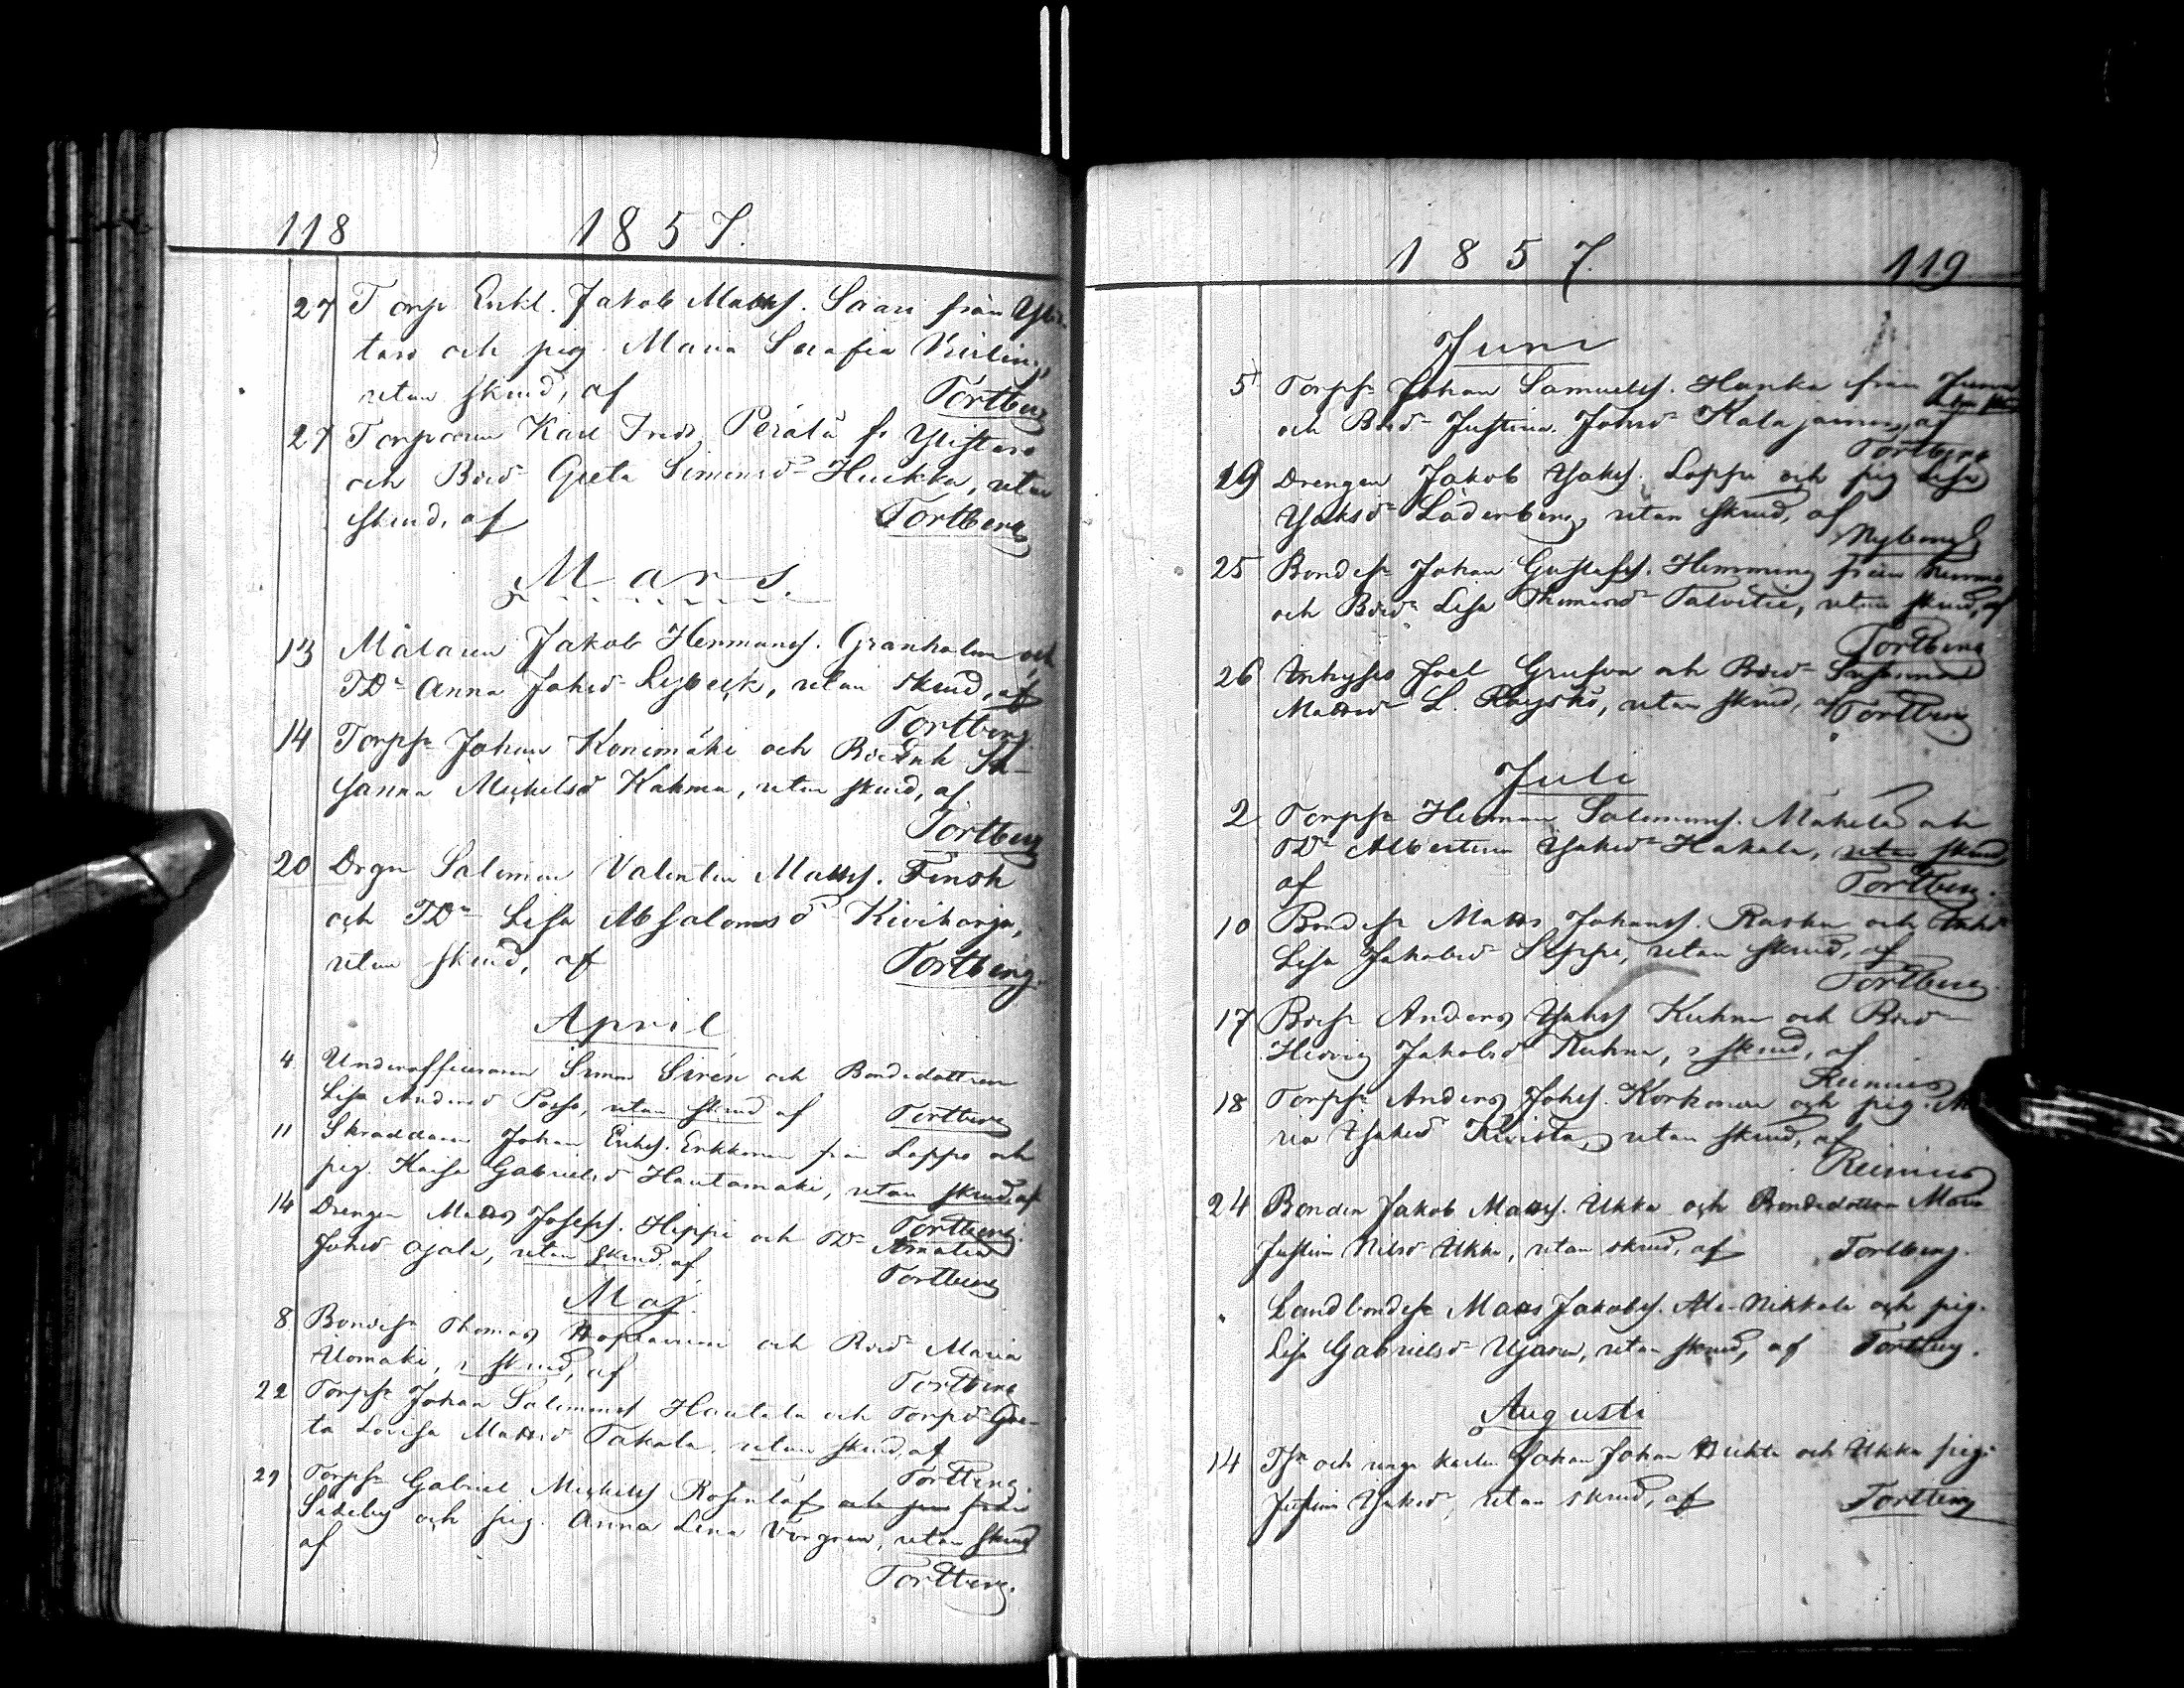 118 1857.
27 Torp. Enkl. Jakob Matts. Saari från Ylis-
taro och pig. Maria Serafia
utan skrud, af Tortberg
27 Torparen Karl Fredr. Perälä fr Ylistaro
och Bdr Greta Simonsdr Huckka, utan
skrud, af Tortberg
Mars.
13 Målaren Jakob Hermans. Granholm och
TDr Anna Johsdr Lejbeck, utan skrud, af
Tortberg
14 Torpsn Johan Konimäki och Su-
sanna Michelsdr Kahma, utan skrud, af
Tortberg
20 Drgn Salomon Valentin Matts. Finsk
och TDr Lisa Absalomsdr Kiviharju,
utan skrud, af Tortberg.
April
4. Underofficeraren Simon Sirén och Bondedottren
Lisa Andersdr utan skrud af Tortberg
11 Skräddaren Johan Eriks. Erkkonen från Lappo och
pig. Kaisa Gabrielsdr Hautamäki, utan skrud, af
Tortberg.
14 Drengen Matts Josefs. Hippi och TDr Amalia
Johsdr Ojala, utan skrud, af
Tortberg
Maj.
8. Bondesn Thomas och Bdr Maria
Uomäki, i skrud, af Tortberg
22 Torpsn Johan Salomons Hautala och Torpdr Gre-
ta Lovisa Mattsdr Takala, utan skrud, af
Tortberg.
29 Torpsn Gabriel Michels Rosenlöf från
Sideby och pig. Anna Lena utan skrud
af
Tortberg.
1857. 119
Juni
5 Torpsn Johan Samuels. Hanka från
och Bdr Justina Johsdr af
Tortberg
19 Drengen Jakob Isaks. Loppi och pig Lisa
Isaksdr Läderberg, utan skrud, af
25 Bondesn Johan Gustafs. Hemming från
och Bdr Lisa Thomasdr Talvitie, utan skrud, af
Tortberg
26 Inhyses Joel och Bdr Susanna
Mattsdr L. utan skrud, af Tortberg
Juli
2 Torpsn Herman Salomons. Mäkelä och
TDr Albertina Isaksdr Hakala, utan skrud,
af Tortberg.
10 Bondesn Matts Johans. Raska och
Lisa Jakobsdr Seppi, utan skrud, af
Tortberg.
17 Bdesn Anders Isaks Kuhna och Bdr
Hedvig Jakobsdr Kuhna, i skrud, af
Reinius
18 Torpsn Anders Johs. Korkonen och pig. Ma-
ria Isaksdr Kivistö, utan skrud, af
Reinius
24 Bonden Jakob Matts. Ukko och Bondedottren Maria
Justina Nilsdr Ukko, utan skrud, af Tortberg.
" Landbondesn Matts Jakobs. Ala-Nikkola och pig.
Lisa Gabrielsdr utan skrud, af Tortberg.
Augusti
14 Tsn och unga karlen Johan Johan och Ukko pig.
Justina Isaksdr, utan skrud, af Tortberg